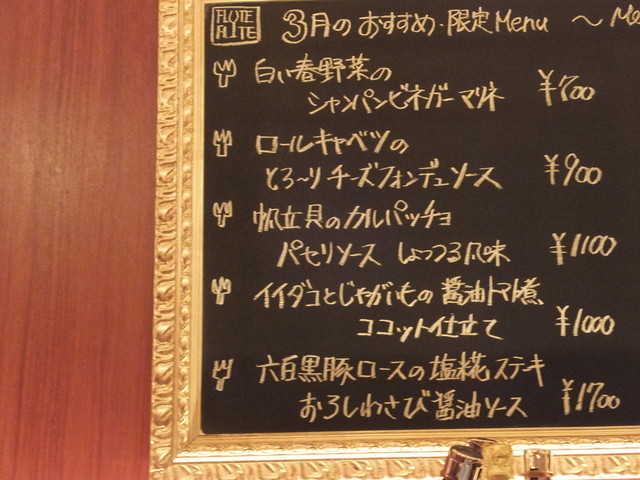 FLUTE FLUTE
3月のおすすめ・限定Menu 〜Me
白い春野菜の
シャンパンビネガーマリネ ¥700
ロールキャベツの
とろ〜りチーズフォンデュソース ¥900
帆立貝のカルパッチョ
パセリソース しょっつる風味 ¥1100
イイダコとじゃがいもの醤油トマト煮
ココット仕立て ¥1000
六白黒豚ロースの塩糀ステキ
おろしわさび醤油ソース ¥1700